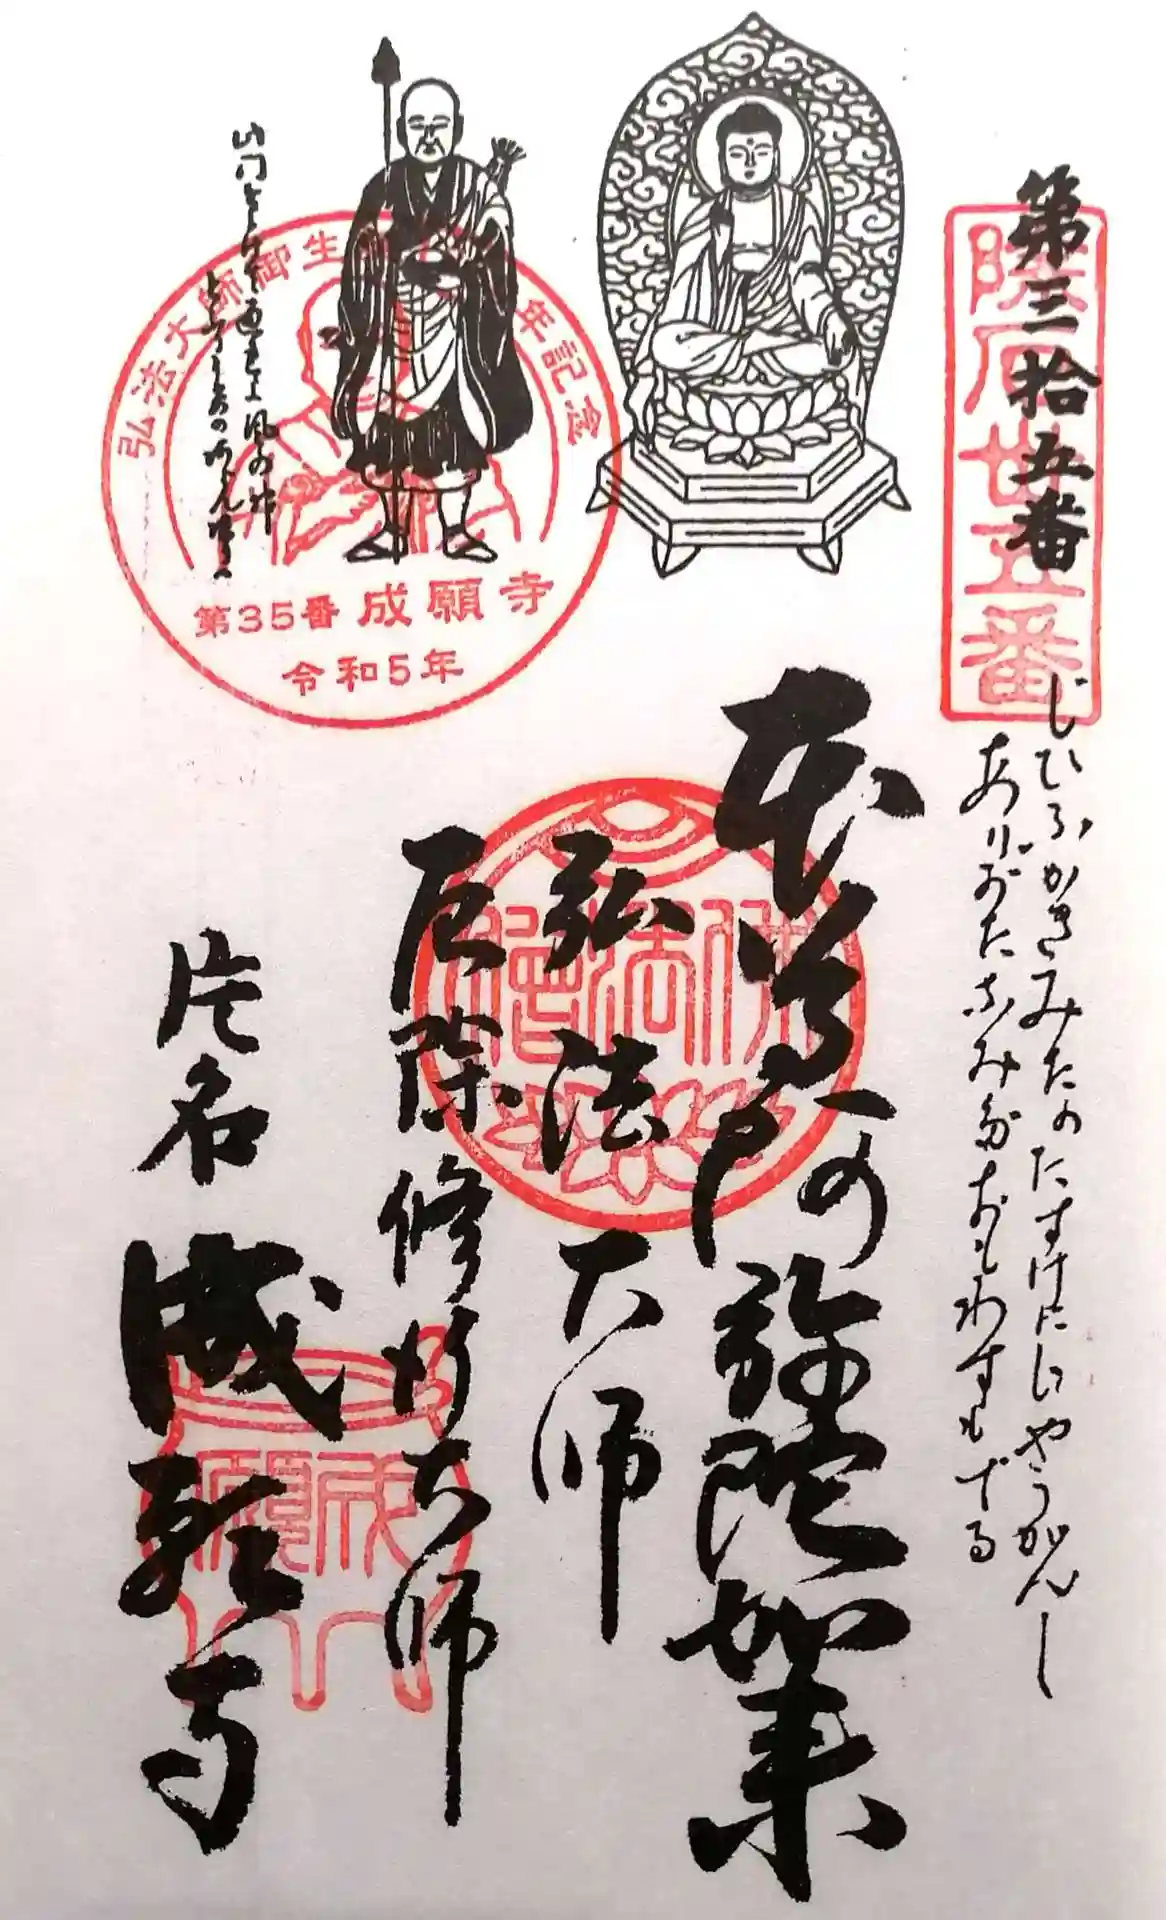 第三拾五番
霊厄卅五番
じひふかきみたのたすけにじやうがんし
ありがたなみだおもわすもでる
本尊阿弥陀如来
佛法僧
弘法大師
厄除修行大師
片名
成願寺
成願
弘法大師御生 年記念
第35番 成願寺
令和5年